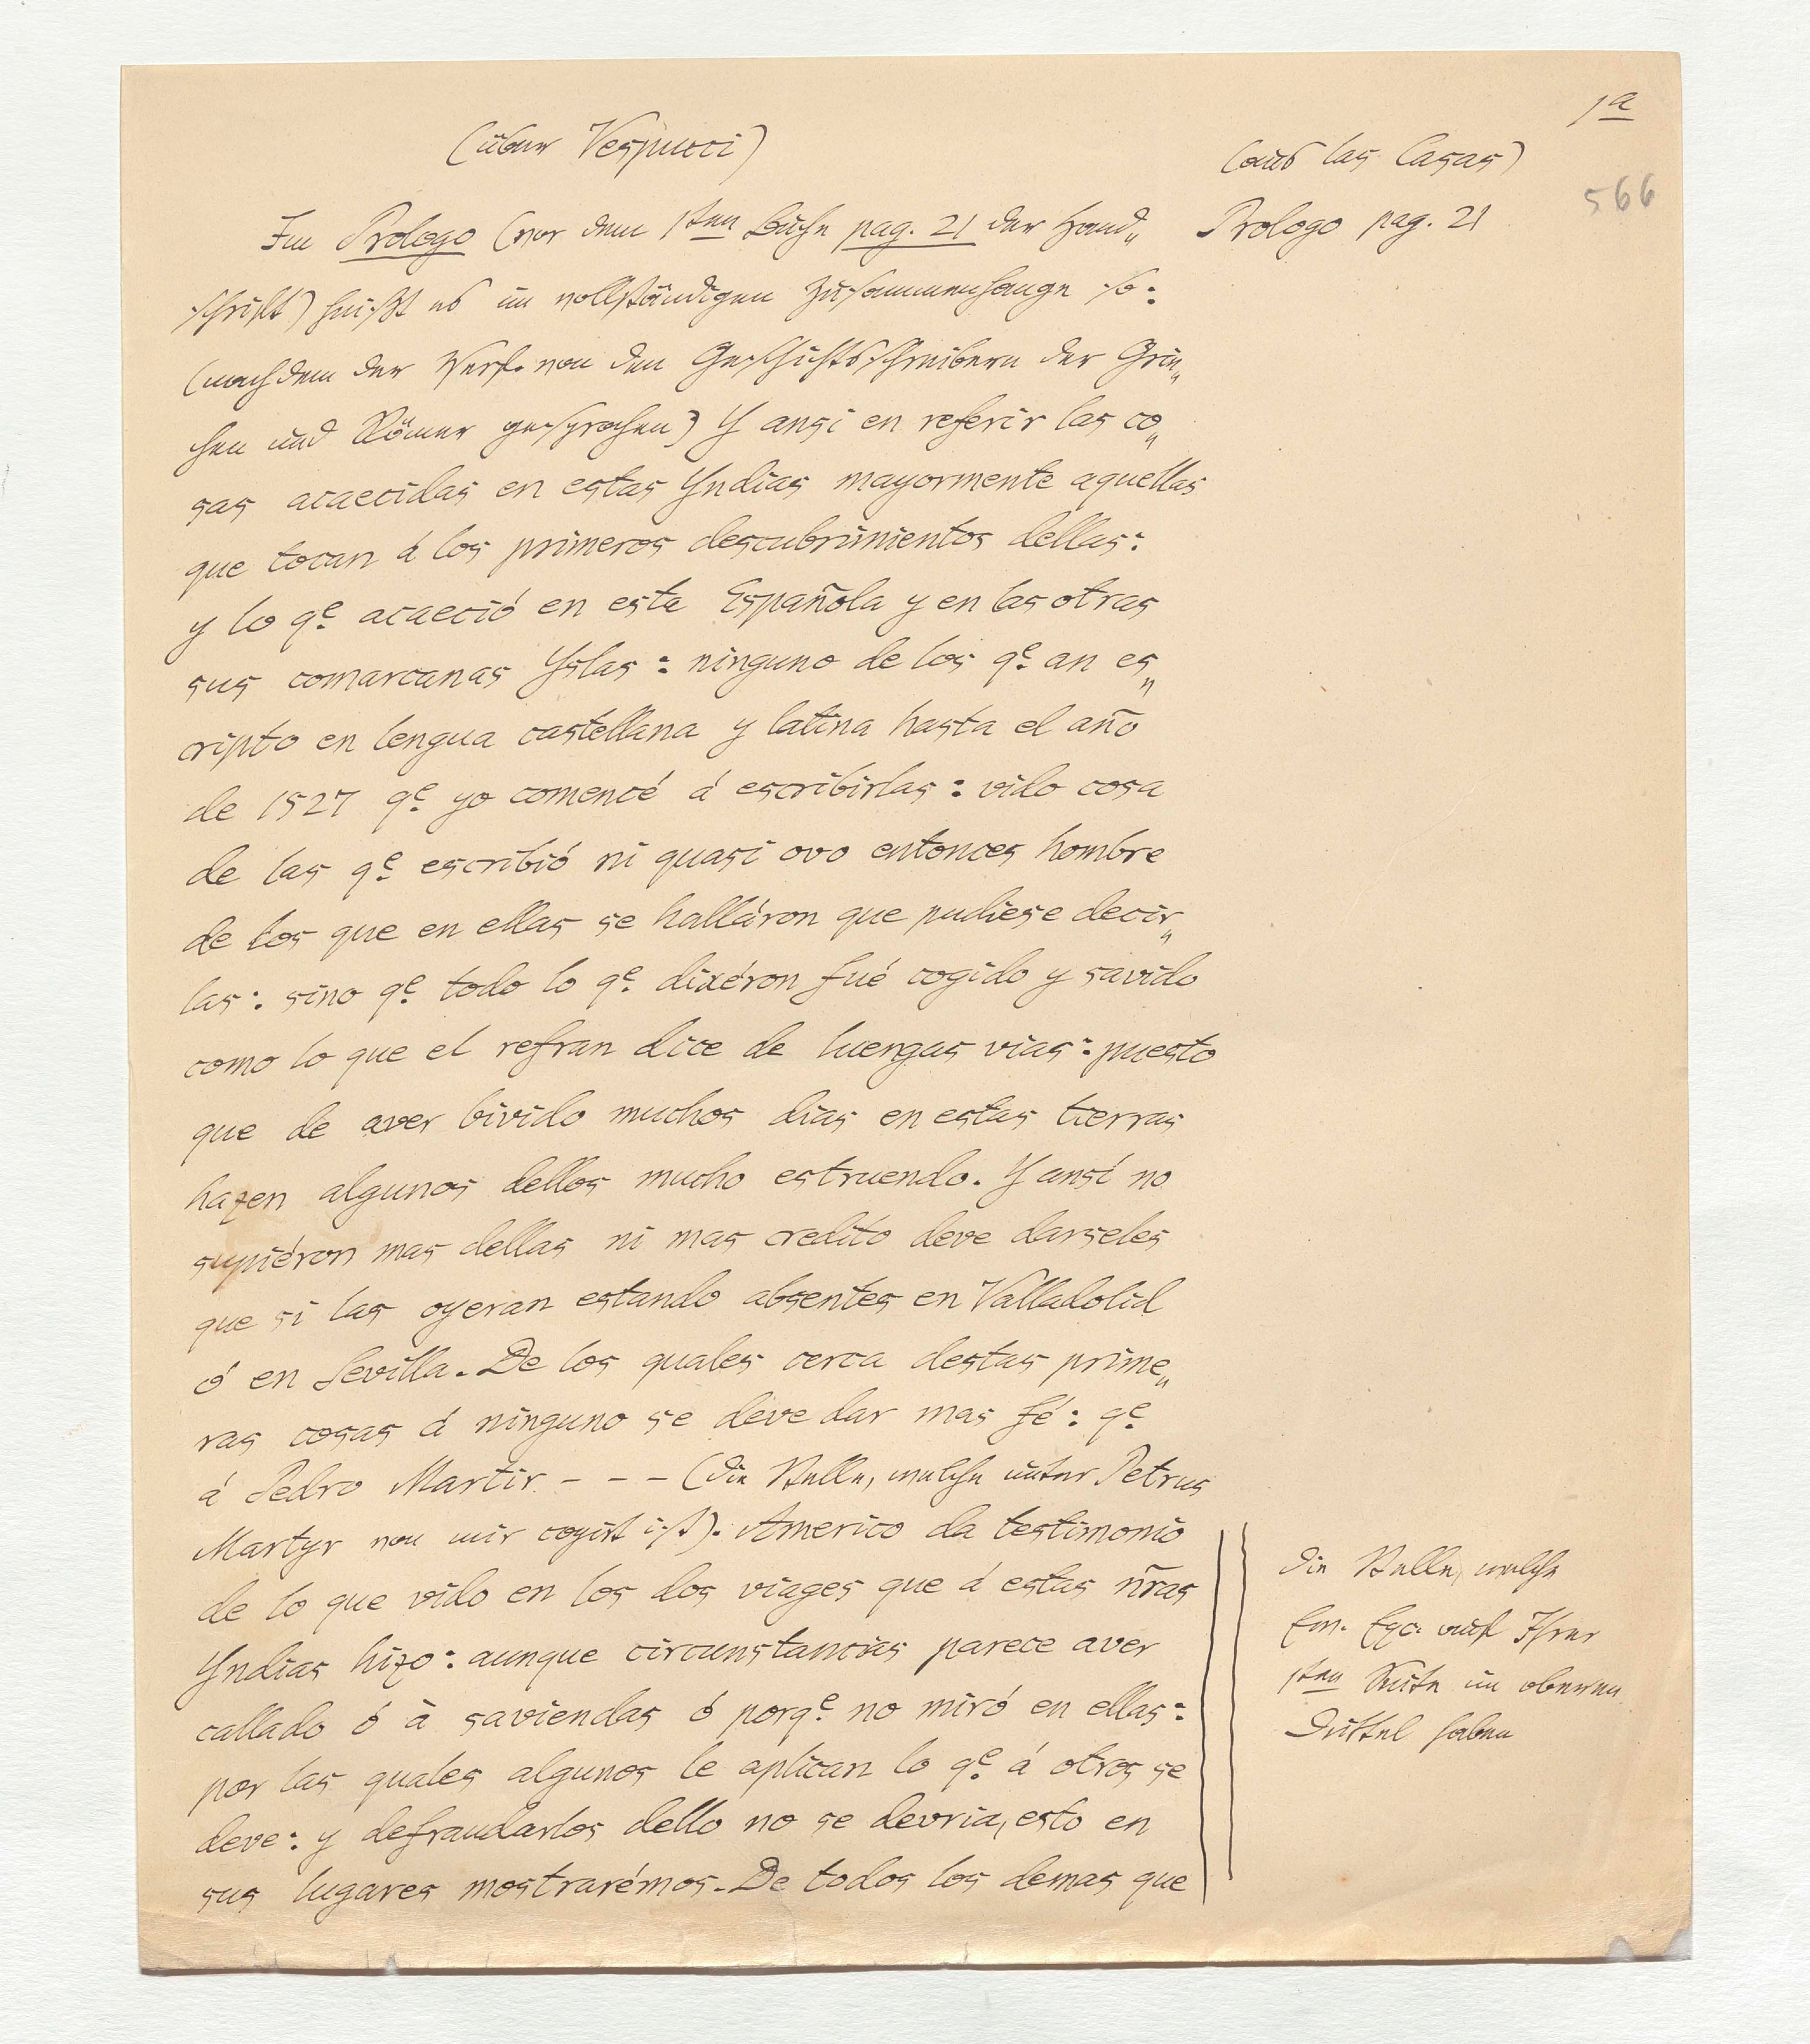 1a
(über Vespucci)
(aus las Casas)
566
Im Prologo (vor dem 1sten Buche pag. 21 der Hand„
Prologo pag. 21
schrift) heißt es im vollständigen Zusammenhange so:
(nachdem der Verf. von den Geschichtsschreibern der Grie„
chen und Römer gesprochen) Y ansi en referir las co„
sas acaecidas en estas Yndias mayormente aquellas
que tocan á los primeros descubrimientos dellas:
y lo qe. acaeció en esta Española y en las otras
sus comarcanas Yslas: ninguno de los qe. an es„
cripto en lengua castellana y latina hasta el año
de 1527 qe. yo comencé á escribirlas: vido cosa
de las qe. escribió ni quasi ovo entonces hombre
de los que en ellas se halláron que pudiese decir„
las: sino qe. todo lo qe. dixéron fué cogido y savido
como lo que el refran dice de luengas vias: puesto
que de aver bivido muchos dias en estas tierras
hazen algunos dellos mucho estruendo. Y ansí no
supiéron mas dellas ni mas credito deve darseles
que si las oyeran estando absentes en Valladolid
ó en Sevilla. De los quales cerca destas prime„
ras cosas á ninguno se deve dar mas fé: qe.
á Pedro Martir - - - (die Stelle, welche unter Petrus
Martyr von mir copirt ist). Americo da testimonio
de lo que vido en los dos viages que á estas nr̃as
Yndias hizo: aunque circunstancias parece aver
callado ó à saviendas ó porqe. no miró en ellas:
por las quales algunos le aplican lo qe. á otros se
deve: y defraudarlos dello no se devria, esto en
sus lugares mostrarémos. De todos los demas que
die Stelle, welche
Ew. Exc. auf Ihrer
1sten Seite im oberen
Drittel haben